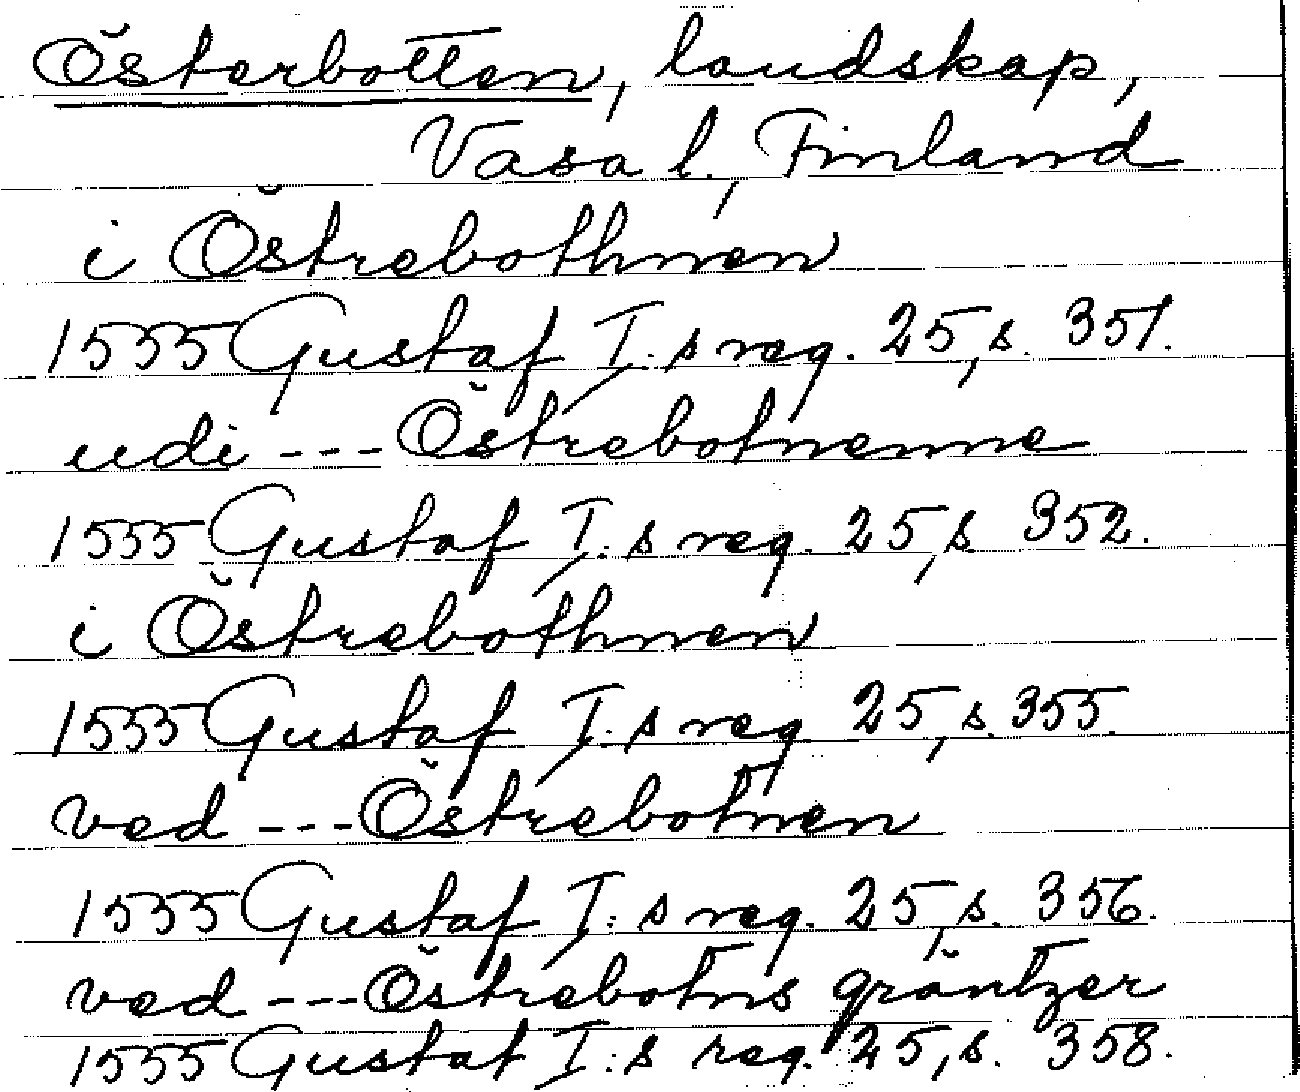 Österbotten, landskap,
Vasa l., Finland
i Östrebothnen
1555 Gustaf I:s reg. 25, s. 351.
udi --- Östrebotnenne
1555 Gustaf I:s reg. 25, s 352.
i Östrebothnen
1555 Gustaf I:s reg 25, s. 355.
ved --- Östrebotnen
1555 Gustaf I:s reg. 25, s. 356.
ved --- Östrebotns gräntzer
1555 Gustaf I:s reg. 25, s. 358.